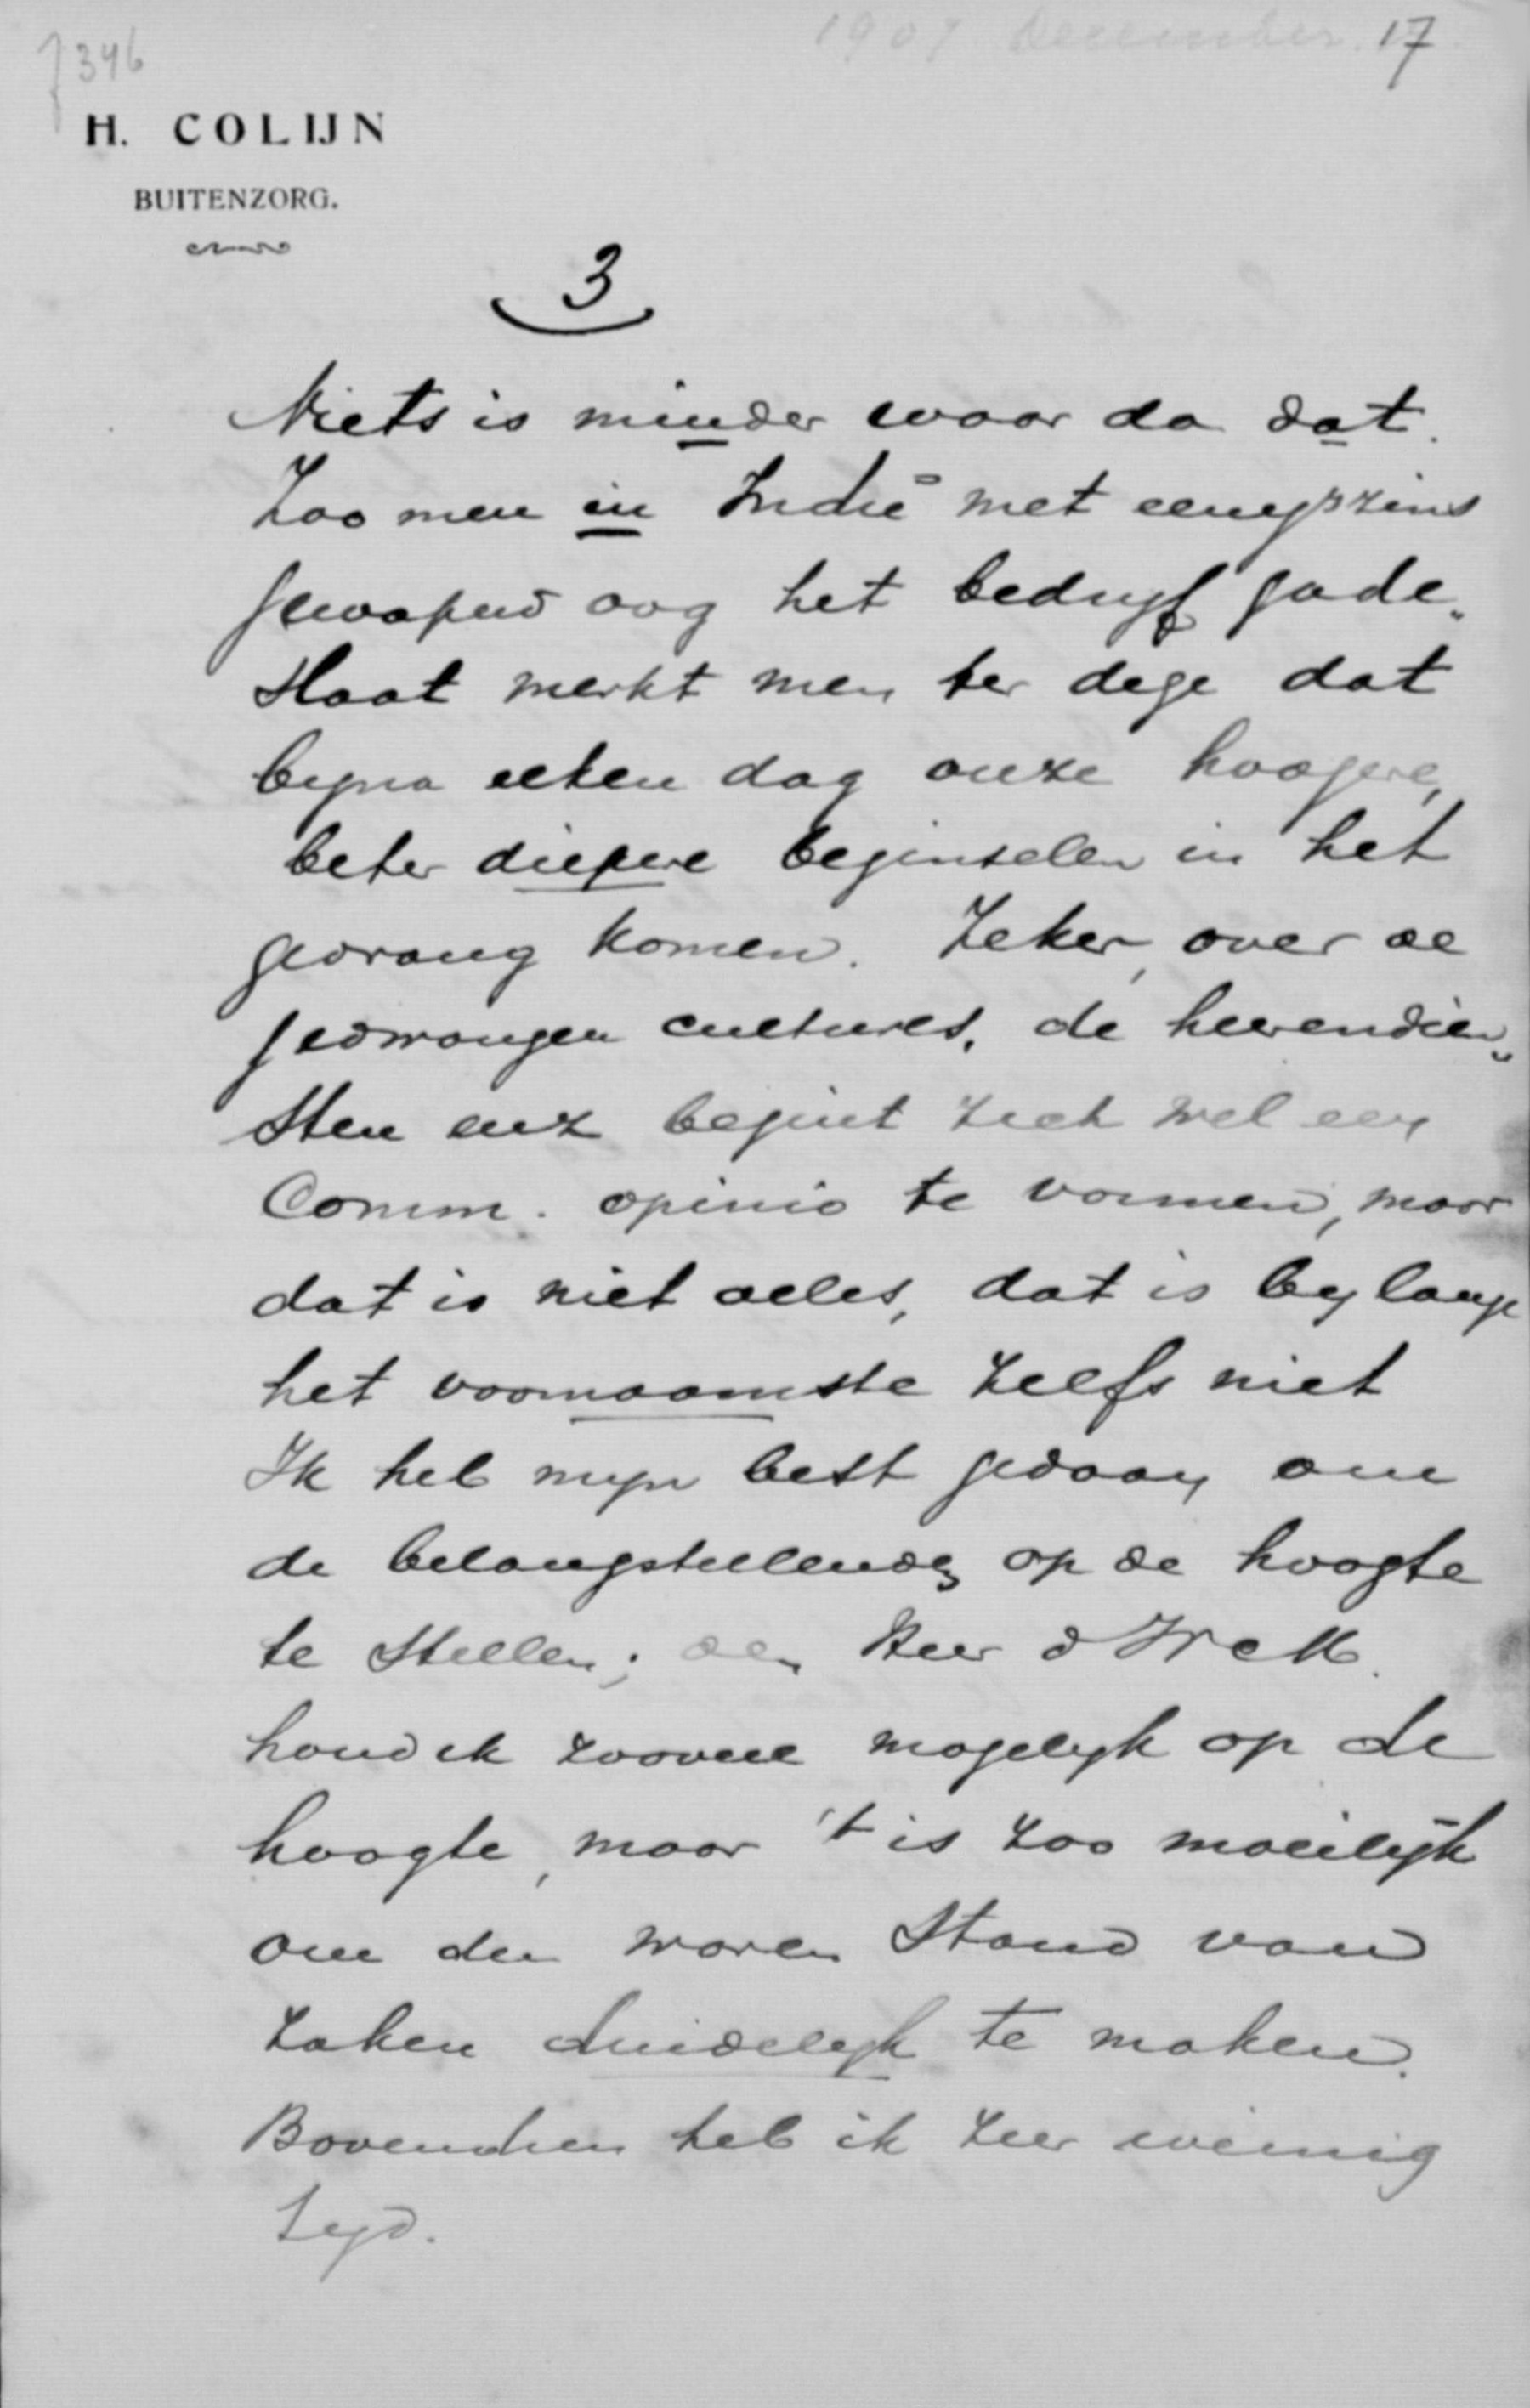 7346
1907 December. 17
H. COLIJN
BUITENZORG.
3
Niets is minder waar da dat.
Zoo men in Indië met eenigszins
gewapend oog het bedryf gade„
slaat merkt men ter dege dat
byna elken dag onze hoogere,
beter diepere beginselen in het
gedrang komen. Zeker, over de
gedwongen cultures, de heerendien„
sten enz begint zich wel een
Comm. opinio te vormen, maar
dat is niet alles, dat is by lange
het voornaamste zelfs niet
Ik heb myn best gedaan om
de belangstellenden op de hoogte
te stellen; den Heer
houd ik zooveel mogelyk op de
hoogte, maar 't is zoo moeilijk
om den waren stand van
zaken duidelyk te maken.
Bovendien heb ik zeer weinig
tyd.